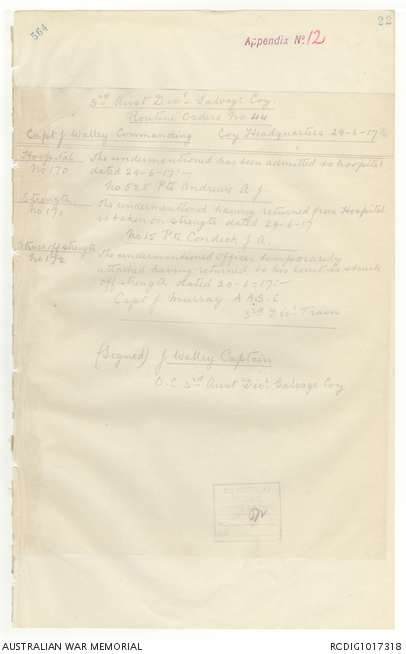 564
Appendix No 12
22
3rd Aust Divl Salvage Coy
Routine Orders No 44
Capt J Walley Commanding Coy Headquarters 29-6-17
Hospital The undermentioned has been admitted to hospital
No 170 dated 29-6-17:-
No 525 Pte Andrews A. J.
Strength The undermentioned having returned from Hospital
No 171 is taken on strength dated 29-6-17
No 15 Pte Condick J. A.
Struck off strength The undermentioned officer temporarily
No 172 attached having returned to his Unit is struck
off strength dated 29-6-17:-
Capt J. Murray A.A.S.C
3rd Div Train
(Signed) J Walley Captain
O.C 3rd Aust Divl Salvage Coy
AUSTRALIAN WAR MEMORIAL
RCDIG1017318